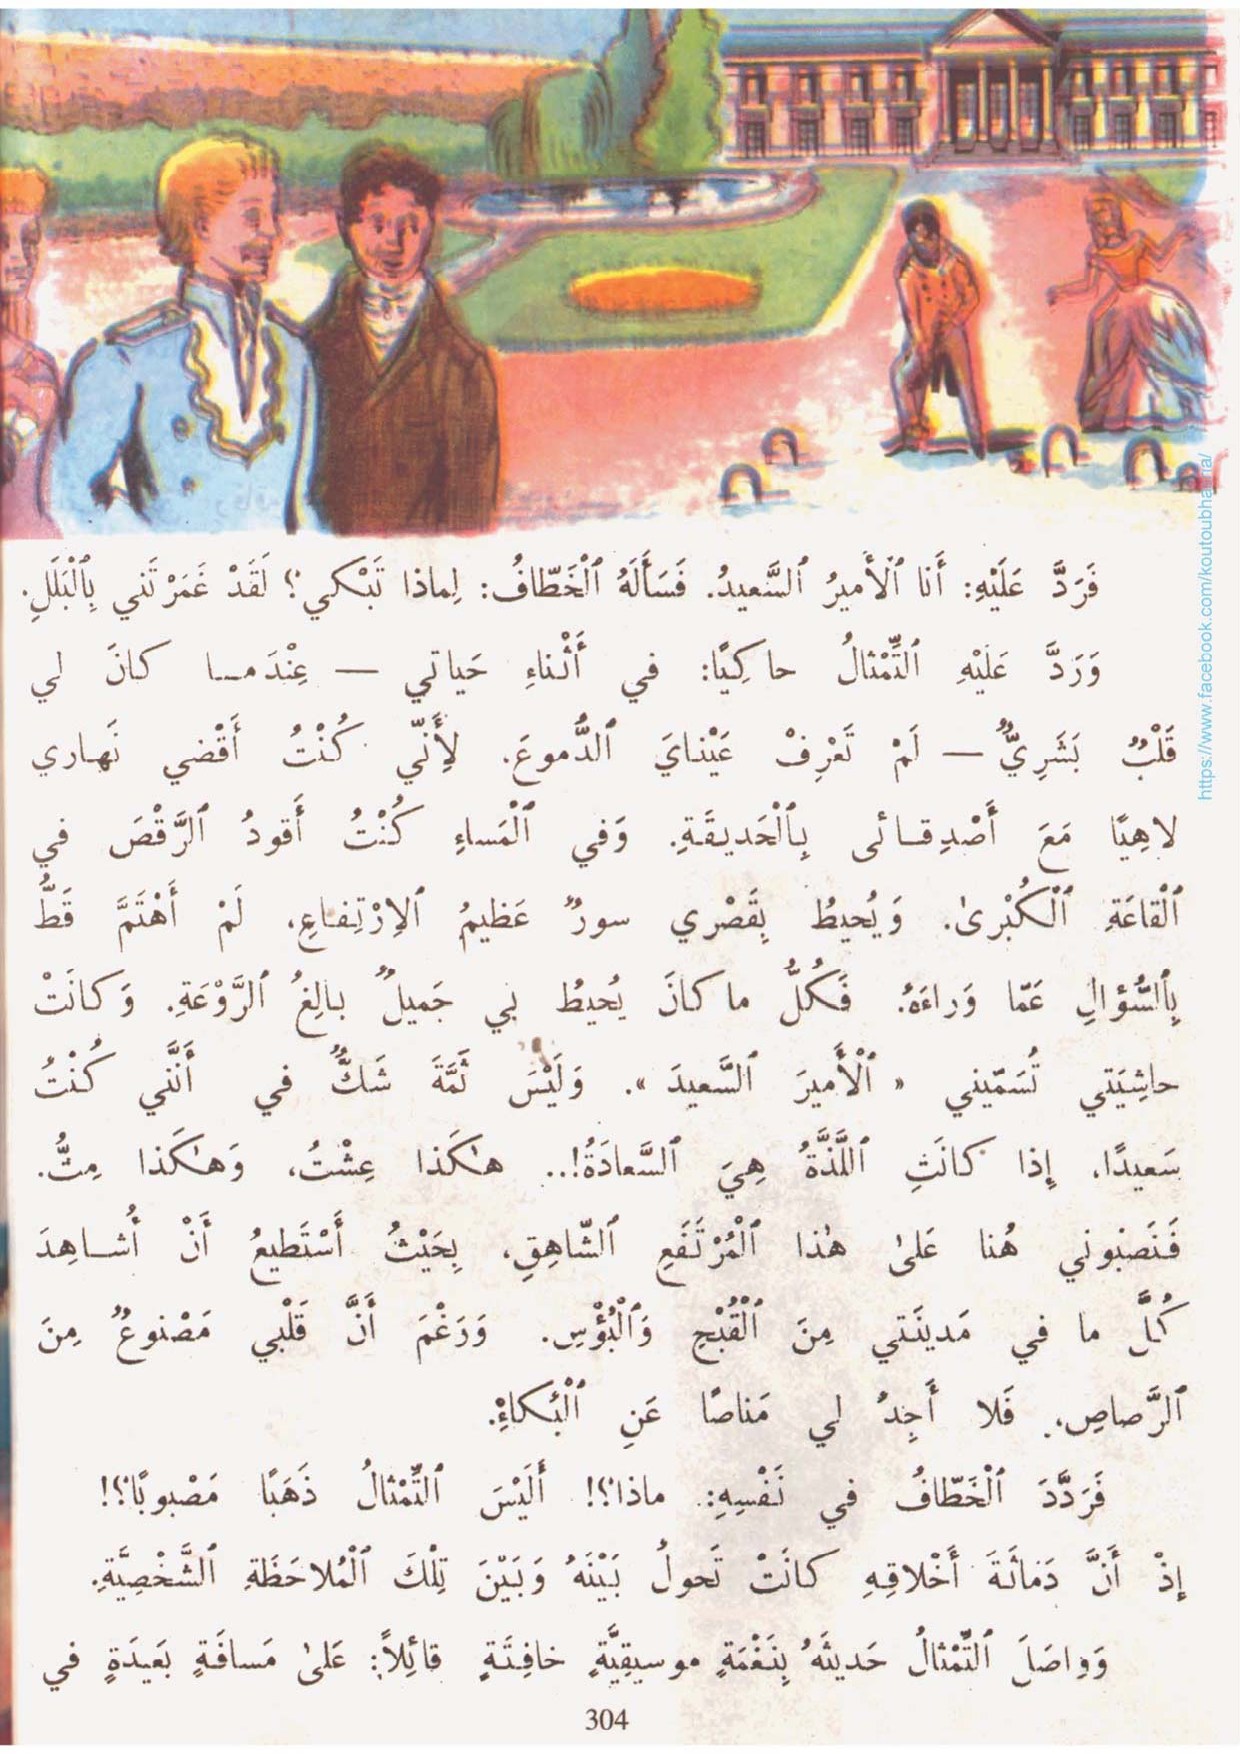 فَرَدَّ عَلَيْهِ: أَنا ٱلْأَميرُ ٱلسَّعيدُ. فَسَأَلَهُ ٱلْخَطّافُ: لِماذا تَبْكي؟ لَقَدْ غَمَرْتَني بِٱلْبَلَلِ.
وَرَدَّ عَلَيْهِ ٱلتِّمْثالُ حاكِيًا: في أَثْناءِ حَياتي — عِنْدَمـا كانَ لي
قَلْبٌ بَشَرِيٌّ — لَمْ تَعْرِفْ عَيْنايَ ٱلدُّموعَ. لِأَنّي كُنْتُ أَقْضي نَهاري
لاهِيًا مَعَ أَصْدِقـائى بِٱلْحَديقَةِ. وَفي ٱلْمَساءِ كُنْتُ أَقودُ ٱلرَّقْصَ في
ٱلْقاعَةِ ٱلْكُبْرىٰ. وَيُحيطُ بِقَصْري سورٌ عَظيمُ ٱلِارْتِفاعِ، لَمْ أَهْتَمَّ قَطُّ
بِٱلسُّؤالِ عَمّا وَراءَهُ. فَكُلُّ ما كانَ يُحيطُ بي جَميلٌ بالِغُ ٱلرَّوْعَةِ. وَكانَتْ
حاشِيَتي تُسَمّيني « ٱلْأَميرَ ٱلسَّعيدَ ». وَلَيْسَ ثَمَّةَ شَكٌّ في أَنَّني كُنْتُ
سَعيدًا، إِذا كانَتِ ٱللَّذَّةُ هِيَ ٱلسَّعادَةُ!.. هٰكَذا عِشْتُ، وَهٰكَذا مِتُّ.
فَنَصَبُوني هُنا عَلىٰ هٰذا ٱلْمُرْتَفَعِ ٱلشّاهِقِ، بِحَيْثُ أَسْتَطيعُ أَنْ أُشـاهِدَ
كُلَّ ما في مَدينَتي مِنَ ٱلْقُبْحِ وَٱلْبُؤْسِ. وَرَغْمَ أَنَّ قَلْبي مَصْنوعٌ مِنَ
ٱلرَّصاصِ، فَلا أَجِدُ لي مَناصًا عَنِ ٱلْبُكاءِ.
فَرَدَّدَ ٱلْخَطّافُ في نَفْسِهِ: ماذا؟! أَلَيْسَ ٱلتِّمْثالُ ذَهَبًا مَصْبوبًا؟!
إِذْ أَنَّ دَماثَةَ أَخْلاقِهِ كانَتْ تَحولُ بَيْنَهُ وَبَيْنَ تِلْكَ ٱلْمُلاحَظَةِ ٱلشَّخْصِيَّةِ.
وَواصَلَ ٱلتِّمْثالُ حَديثَهُ بِنَغْمَةٍ موسيقِيَّةٍ خافِتَةٍ قائِلاً: عَلىٰ مَسافَةٍ بَعيدَةٍ في
304